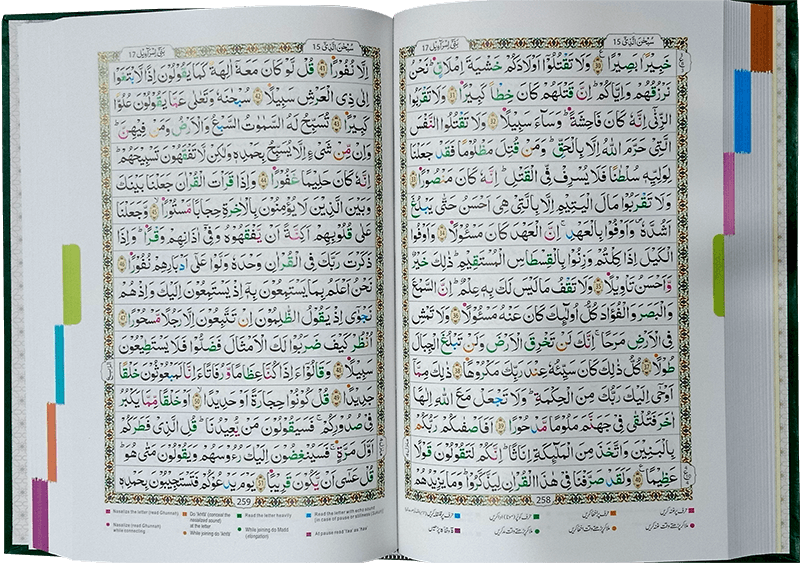 سُبْحٰنَ الَّذِیْٓ 15
بَنِیْٓ اِسْرَآءِیْل 17
خَبِیْرًۢا بَصِیْرًا ۟ وَلَا تَقْتُلُوْۤا اَوْلَادَكُمْ خَشْیَةَ اِمْلَاقٍ ؕ نَحْنُ
نَرْزُقُهُمْ وَاِیَّاكُمْ ؕ اِنَّ قَتْلَهُمْ كَانَ خِطْاً كَبِیْرًا ۟ وَلَا تَقْرَبُوا
الزِّنٰۤی اِنَّهٗ كَانَ فَاحِشَةً ؕ وَسَآءَ سَبِیْلًا ۟ وَلَا تَقْتُلُوا النَّفْسَ
الَّتِیْ حَرَّمَ اللّٰهُ اِلَّا بِالْحَقِّ ؕ وَمَنْ قُتِلَ مَظْلُوْمًا فَقَدْ جَعَلْنَا
لِوَلِیِّهٖ سُلْطٰنًا فَلَا یُسْرِفْ فِّی الْقَتْلِ ؕ اِنَّهٗ كَانَ مَنْصُوْرًا ۟
وَلَا تَقْرَبُوْا مَالَ الْیَتِیْمِ اِلَّا بِالَّتِیْ هِیَ اَحْسَنُ حَتّٰی یَبْلُغَ
اَشُدَّهٗ ۪ وَاَوْفُوْا بِالْعَهْدِ ۚ اِنَّ الْعَهْدَ كَانَ مَسْـُٔوْلًا ۟ وَاَوْفُوا
الْكَیْلَ اِذَا كِلْتُمْ وَزِنُوْا بِالْقِسْطَاسِ الْمُسْتَقِیْمِ ؕ ذٰلِكَ خَیْرٌ
وَّاَحْسَنُ تَاْوِیْلًا ۟ وَلَا تَقْفُ مَا لَیْسَ لَكَ بِهٖ عِلْمٌ ؕ اِنَّ السَّمْعَ
وَالْبَصَرَ وَالْفُؤَادَ كُلُّ اُولٰٓئِكَ كَانَ عَنْهُ مَسْـُٔوْلًا ۟ وَلَا تَمْشِ
فِی الْاَرْضِ مَرَحًا ۚ اِنَّكَ لَنْ تَخْرِقَ الْاَرْضَ وَلَنْ تَبْلُغَ الْجِبَالَ
طُوْلًا ۟ كُلُّ ذٰلِكَ كَانَ سَیِّئُهٗ عِنْدَ رَبِّكَ مَكْرُوْهًا ۟ ذٰلِكَ مِمَّاۤ
اَوْحٰۤی اِلَیْكَ رَبُّكَ مِنَ الْحِكْمَةِ ؕ وَلَا تَجْعَلْ مَعَ اللّٰهِ اِلٰهًا
اٰخَرَ فَتُلْقٰی فِیْ جَهَنَّمَ مَلُوْمًا مَّدْحُوْرًا ۟ اَفَاَصْفٰىكُمْ رَبُّكُمْ
بِالْبَنِیْنَ وَاتَّخَذَ مِنَ الْمَلٰٓئِكَةِ اِنَاثًا ؕ اِنَّكُمْ لَتَقُوْلُوْنَ قَوْلًا
عَظِیْمًا ۟ وَلَقَدْ صَرَّفْنَا فِیْ هٰذَا الْقُرْاٰنِ لِیَذَّكَّرُوْا ؕ وَمَا یَزِیْدُهُمْ
258
سُبْحٰنَ الَّذِیْٓ 15
بَنِیْٓ اِسْرَآءِیْل 17
اِلَّا نُفُوْرًا ۟ قُلْ لَّوْ كَانَ مَعَهٗۤ اٰلِهَةٌ كَمَا یَقُوْلُوْنَ اِذًا لَّابْتَغَوْا
اِلٰی ذِی الْعَرْشِ سَبِیْلًا ۟ سُبْحٰنَهٗ وَتَعٰلٰی عَمَّا یَقُوْلُوْنَ عُلُوًّا
كَبِیْرًا ۟ تُسَبِّحُ لَهُ السَّمٰوٰتُ السَّبْعُ وَالْاَرْضُ وَمَنْ فِیْهِنَّ ؕ
وَاِنْ مِّنْ شَیْءٍ اِلَّا یُسَبِّحُ بِحَمْدِهٖ وَلٰكِنْ لَّا تَفْقَهُوْنَ تَسْبِیْحَهُمْ ؕ
اِنَّهٗ كَانَ حَلِیْمًا غَفُوْرًا ۟ وَاِذَا قَرَاْتَ الْقُرْاٰنَ جَعَلْنَا بَیْنَكَ
وَبَیْنَ الَّذِیْنَ لَا یُؤْمِنُوْنَ بِالْاٰخِرَةِ حِجَابًا مَّسْتُوْرًا ۟ وَّجَعَلْنَا
عَلٰی قُلُوْبِهِمْ اَكِنَّةً اَنْ یَّفْقَهُوْهُ وَفِیْۤ اٰذَانِهِمْ وَقْرًا ؕ وَاِذَا
ذَكَرْتَ رَبَّكَ فِی الْقُرْاٰنِ وَحْدَهٗ وَلَّوْا عَلٰۤی اَدْبَارِهِمْ نُفُوْرًا ۟
نَحْنُ اَعْلَمُ بِمَا یَسْتَمِعُوْنَ بِهٖۤ اِذْ یَسْتَمِعُوْنَ اِلَیْكَ وَاِذْ هُمْ
نَجْوٰۤی اِذْ یَقُوْلُ الظّٰلِمُوْنَ اِنْ تَتَّبِعُوْنَ اِلَّا رَجُلًا مَّسْحُوْرًا ۟
اُنْظُرْ كَیْفَ ضَرَبُوْا لَكَ الْاَمْثَالَ فَضَلُّوْا فَلَا یَسْتَطِیْعُوْنَ
سَبِیْلًا ۟ وَقَالُوْۤا ءَاِذَا كُنَّا عِظَامًا وَّرُفَاتًا ءَاِنَّا لَمَبْعُوْثُوْنَ خَلْقًا
جَدِیْدًا ۟ قُلْ كُوْنُوْا حِجَارَةً اَوْ حَدِیْدًا ۟ اَوْ خَلْقًا مِّمَّا یَكْبُرُ
فِیْ صُدُوْرِكُمْ ۚ فَسَیَقُوْلُوْنَ مَنْ یُّعِیْدُنَا ؕ قُلِ الَّذِیْ فَطَرَكُمْ
اَوَّلَ مَرَّةٍ ۚ فَسَیُنْغِضُوْنَ اِلَیْكَ رُءُوْسَهُمْ وَیَقُوْلُوْنَ مَتٰی هُوَ ؕ
قُلْ عَسٰۤی اَنْ یَّكُوْنَ قَرِیْبًا ۟ یَوْمَ یَدْعُوْكُمْ فَتَسْتَجِیْبُوْنَ بِحَمْدِهٖ
259
Nasalize the letter (read Ghunnah)
Do 'Ikhfa' (conceal the nasalized sound) of the letter
Read the letter heavily
Read the letter with echo sound (in case of pause or stillness)
Nasalize (read Ghunnah) while connecting
While joining do 'Ikhfa'
While joining do Madd (elongation)
At pause read 'taa' as 'haa'